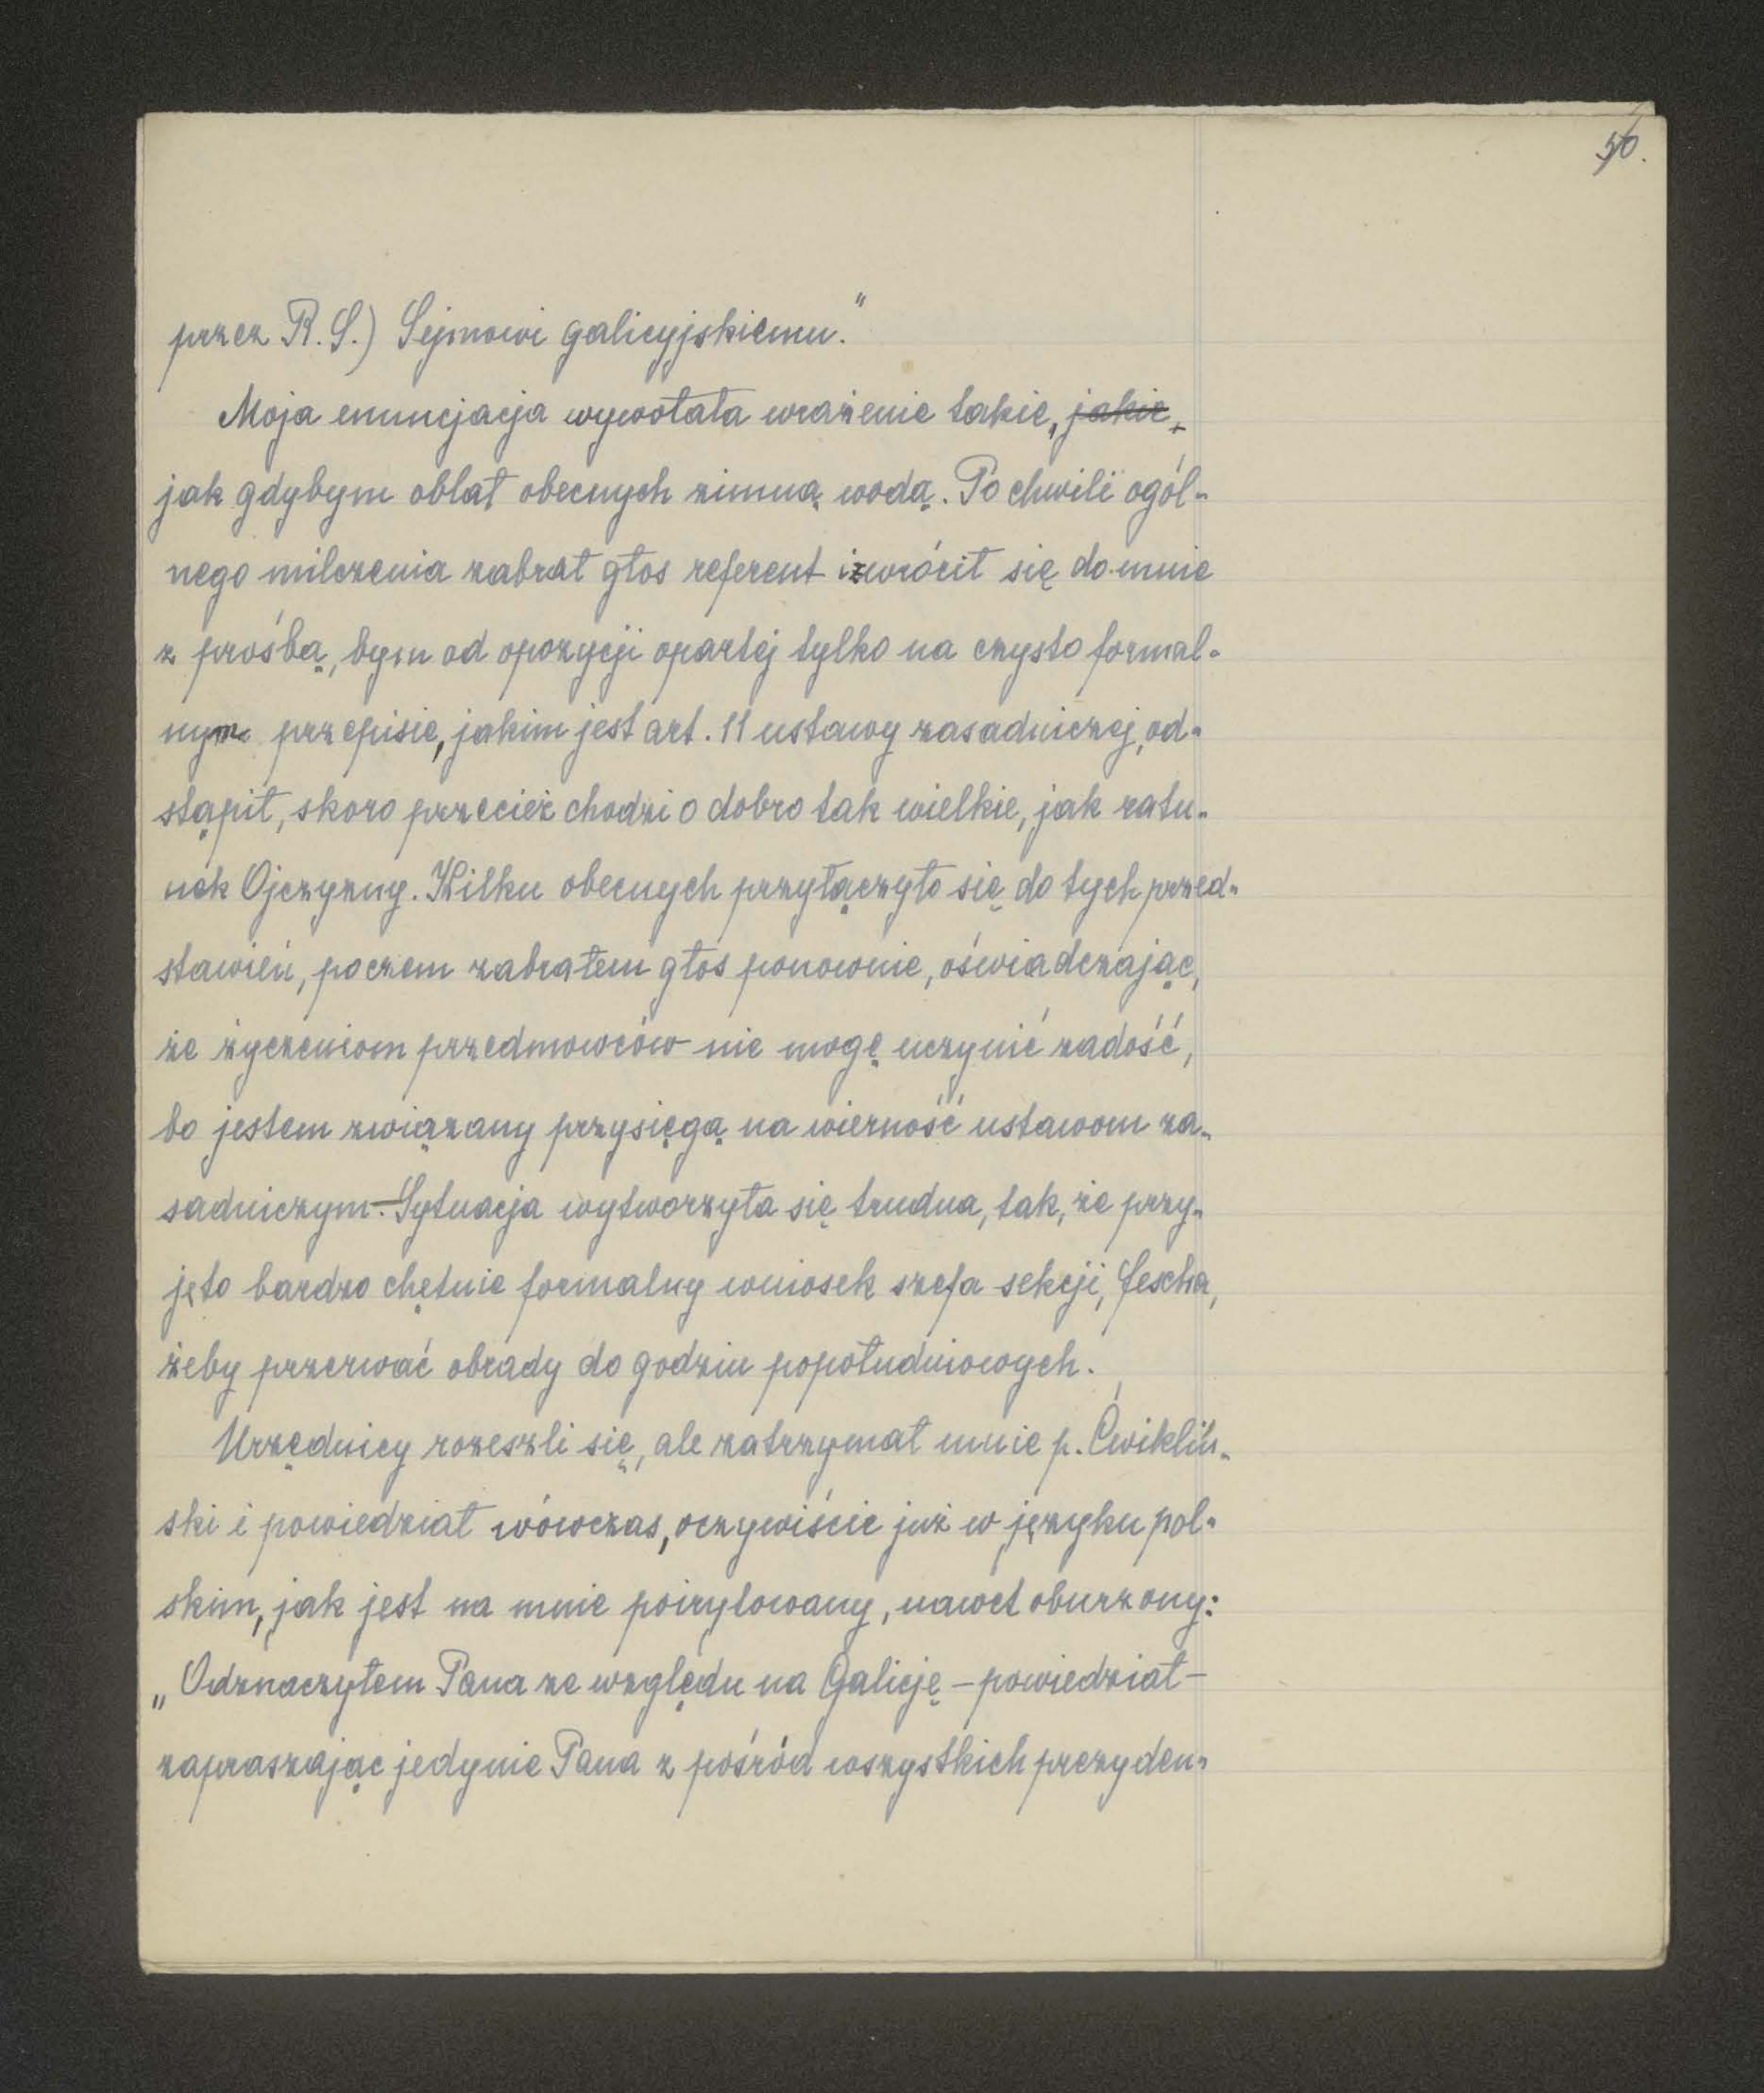 56.
przez R. S.) Sejmowi galicyjskiemu."
Moja enuncjacja wywołała wrażenie takie, jakie,
jak gdybym oblał obecnych zimną wodą. Po chwili ogól-
nego milczenia zabrał głos referent i zwrócił się do mnie
z prośbą, bym od opozycji opartej tylko na czysto formal-
nym przepisie, jakim jest art. 11 ustawy zasadniczej, od-
stąpił, skoro przecież chodzi o dobro tak wielkie, jak ratu-
nek Ojczyzny. Kilku obecnych przyłączyło się do tych przed-
stawień, poczem zabrałem głos ponownie, oświadczając,
że życzeniom przedmowców nie mogę uczynić zadość,
bo jestem związany przysięgą na wierność ustawom za-
sadniczym. – Sytuacja wytworzyła się trudna, tak, że przy-
jęto bardzo chętnie formalny wniosek szefa sekcji, Fescha,
żeby przerwać obrady do godzin popołudniowych.
Urzędnicy rozeszli się, ale zatrzymał mnie p. Ćwikliń-
ski i powiedział wówczas, oczywiście już w języku pol-
skim, jak jest na mnie poirytowany, nawet oburzony:
„Odznaczyłem Pana ze względu na Galicję – powiedział –
zapraszając jedynie Pana z pośród wszystkich prezyden-